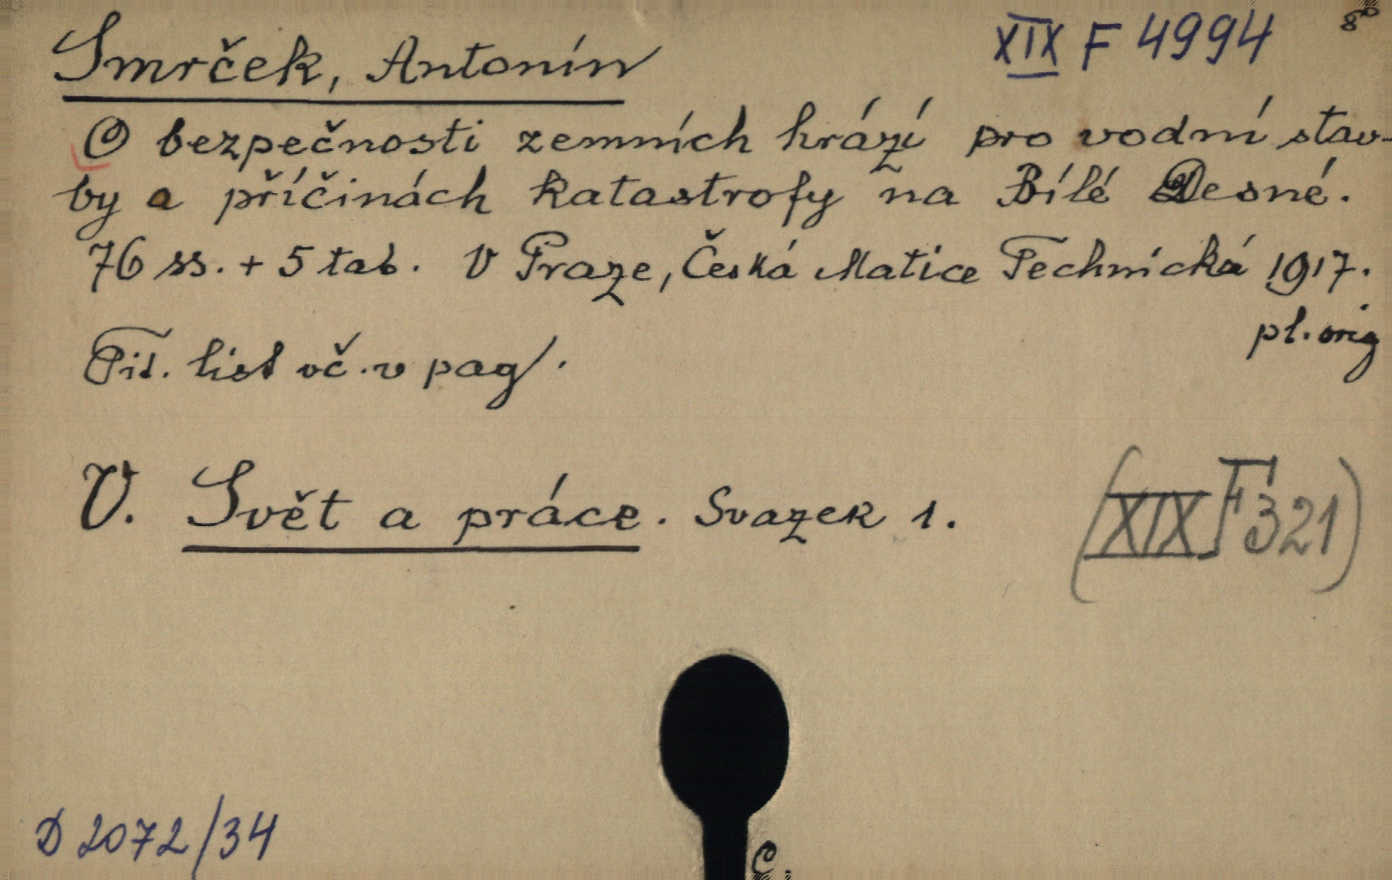 Smrček, Antonín
XIX F 4994
8°
O bezpečnosti zemních hrází pro vodní stav-
by a příčinách katastrofy na Bílé Desné.
76 ss. + 5 tab. V Praze, Česká Matice Technická 1917.
pl. orig
Tit. list vč. v pag.
V. Svět a práce. Svazek 1.
(XIX F 321)
D 2072/34
C.